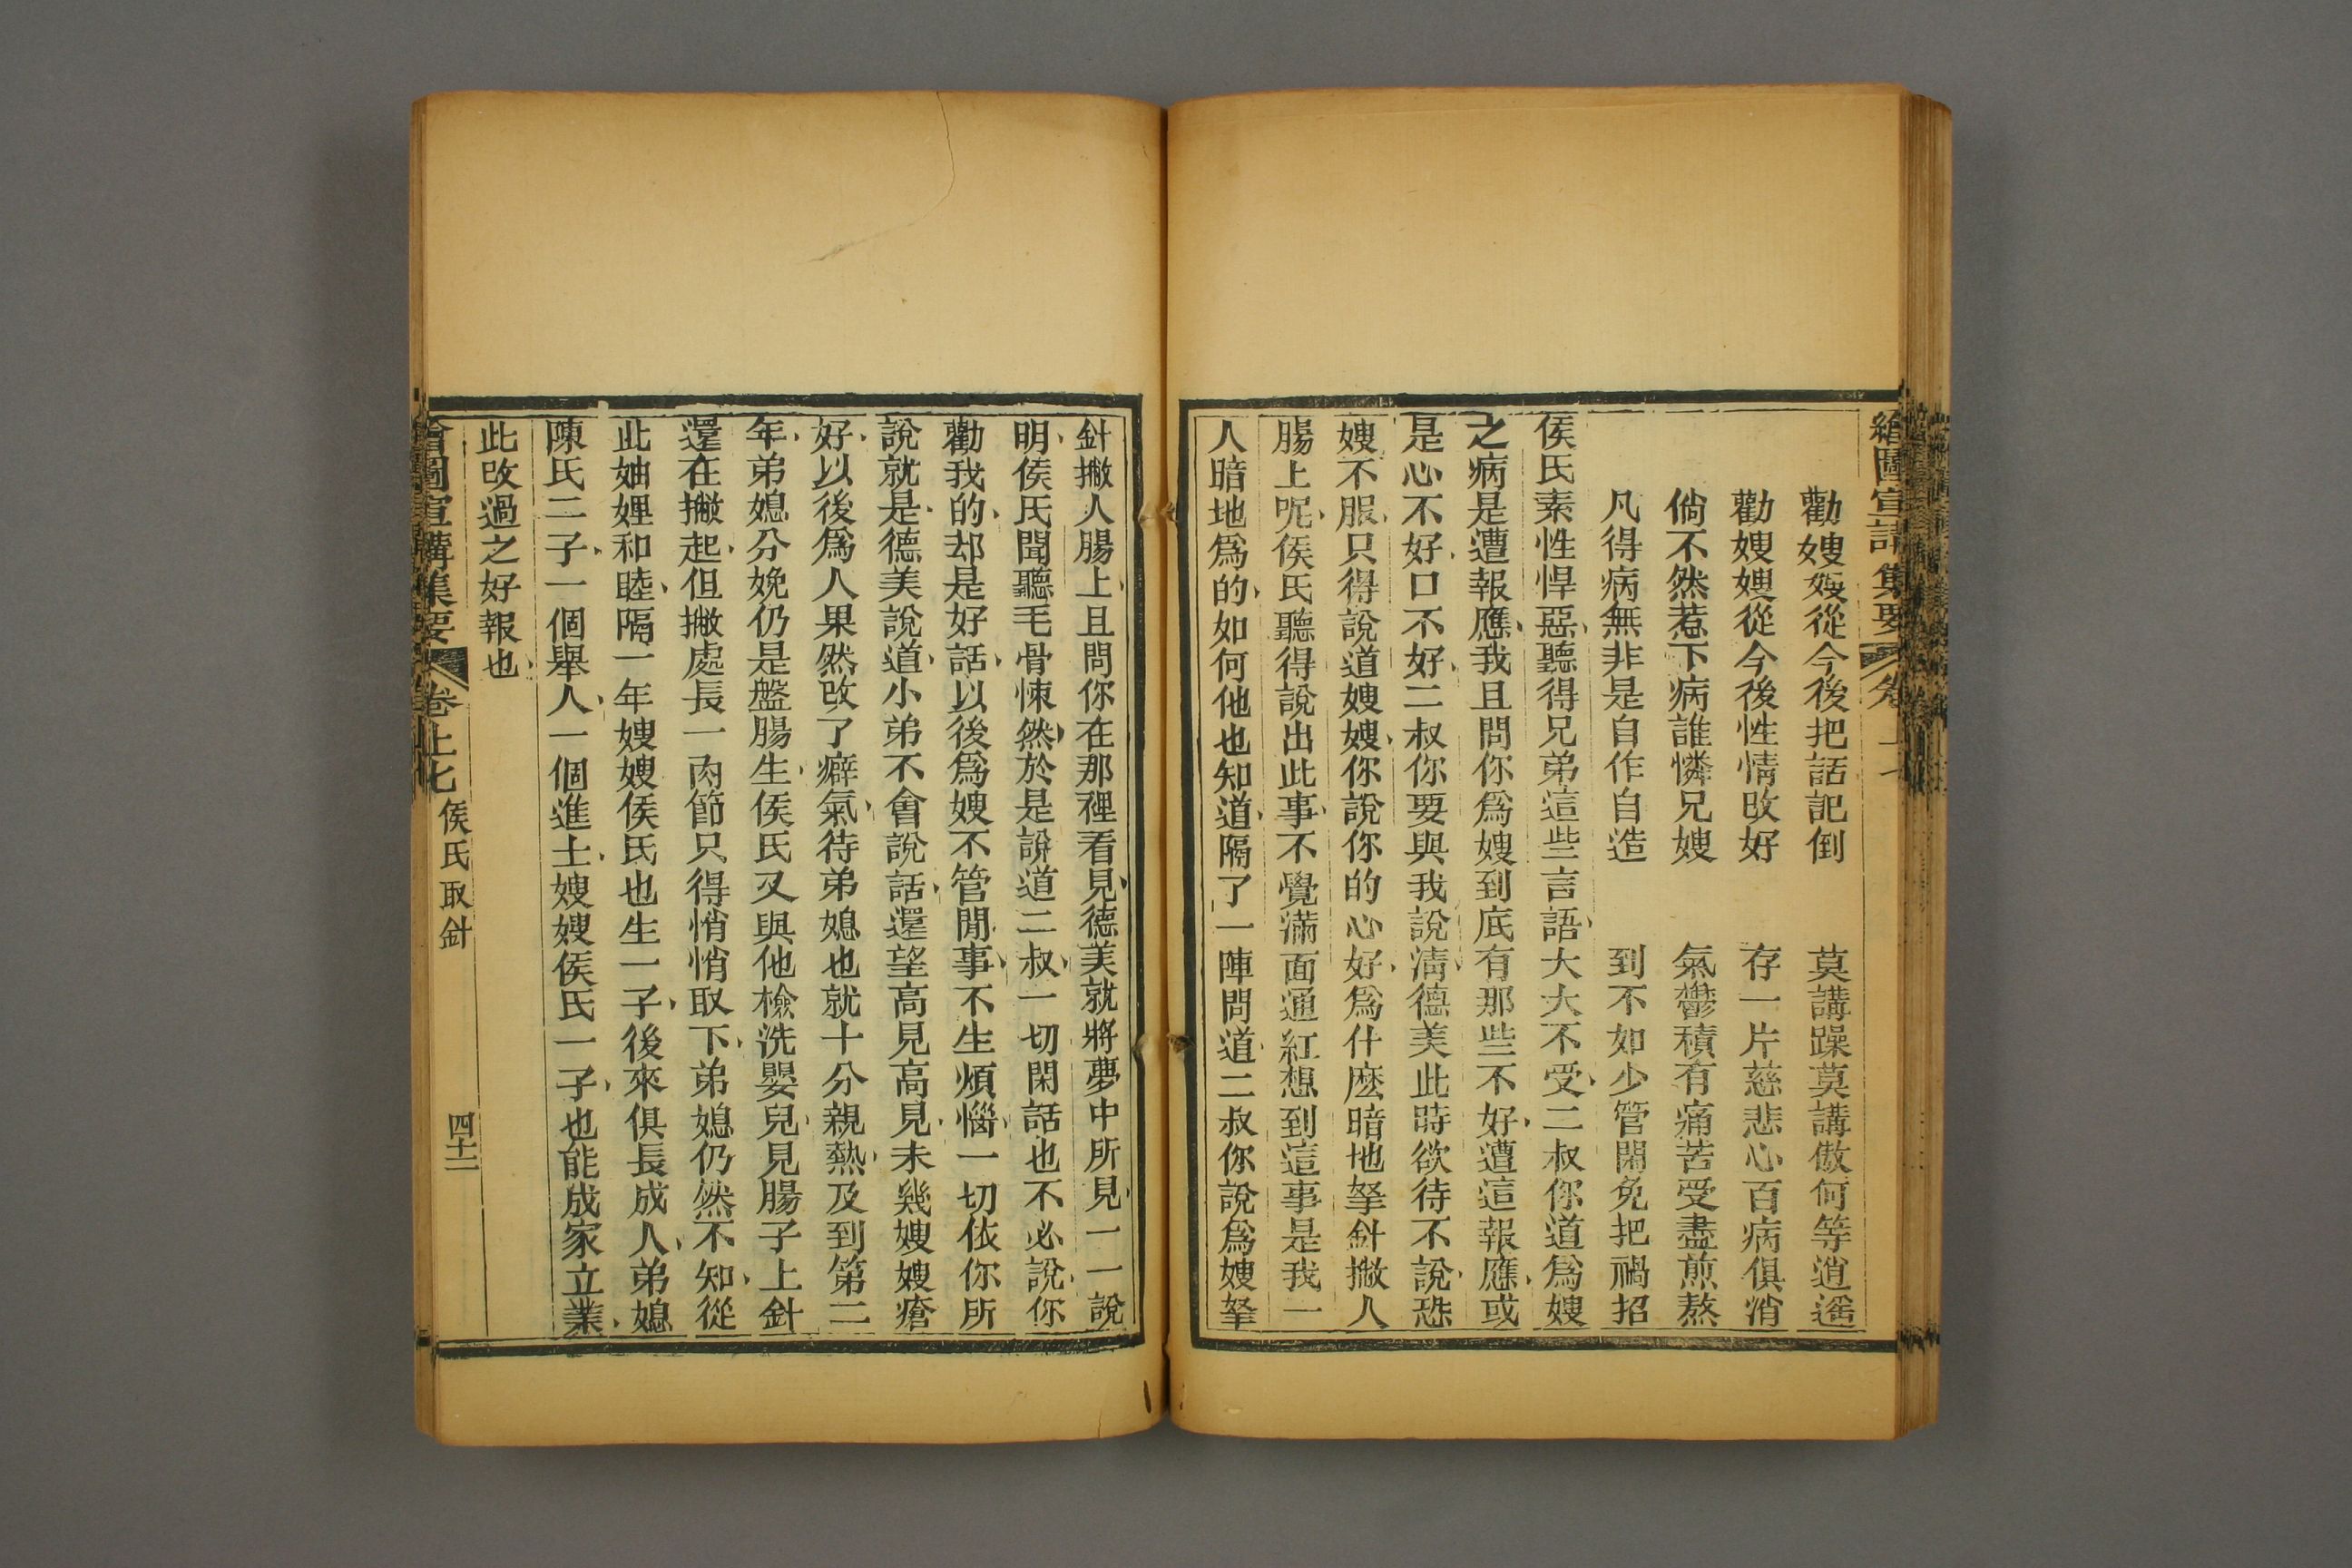 繪圖宣講集要 卷
勸嫂嫂從今後把話記倒 莫講躁莫講傲何等逍遥
勸嫂嫂從今後性情改好 存一片慈悲心百病俱消
倘不然惹下病誰憐兄嫂 氣鬱積有痛苦受盡煎熬
凡得病無非是自作自造 到不如少管閑免把禍招
侯氏素性悍惡聽得兄弟這些言語大大不受二叔你道爲嫂
之病是遭報應我且問你爲嫂到底有那些不好遭這報應或
是心不好口不好二叔你要與我說淸德美此時欲待不說恐
嫂不服只得說道嫂嫂你說你的心好爲什麽暗地拏針撇人
腸上呢侯氏聽得說出此事不覺滿面通紅想到這事是我一
人暗地爲的如何他也知道隔了一陣問道二叔你說爲嫂拏
針撇人腸上且問你在那裡看見德美就將夢中所見一一說
明侯氏聞聽毛骨悚然於是說道二叔一切閑話也不必說你
勸我的却是好話以後爲嫂不管閒事不生煩惱一切依你所
說就是德美說道小弟不會說話還望高見高見未幾嫂嫂瘡
好以後爲人果然改了癖氣待弟媳也就十分親熱及到第二
年弟媳分娩仍是盤腸生侯氏又與他檢洗嬰兒見腸子上針
還在撇起但撇處長一肉節只得悄悄取下弟媳仍然不知從
此妯娌和睦隔一年嫂嫂侯氏也生一子後來俱長成人弟媳
陳氏二子一個舉人一個進士嫂嫂侯氏一子也能成家立業
此改過之好報也
會圖宣講集要 卷上七 侯氏取針 四十二